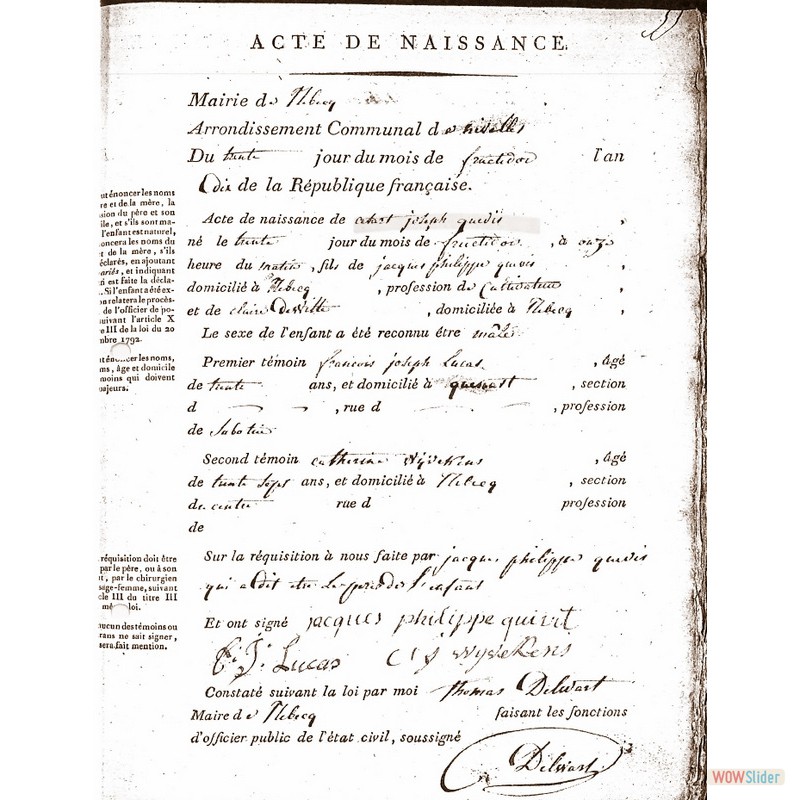 ACTE DE NAISSANCE.
Mairie de Rebecq
Arrondissement Communal de nivelles
Du trente jour du mois de fructidor l'an
dix de la République française.
ut énoncer les noms
re et de la mère, la
sion du père et son
ile, et s'ils sont ma-
l'enfant est naturel,
oncera les noms du
t de la mère, s'ils
éclarés, en ajoutant
arifs, et indiquant
ui est faite la décla-
. Si l'enfant a été ex-
n relatera le procès-
de l'officier de po-
uivant l'article X
e III de la loi du 20
mbre 1792.
Acte de naissance de joseph quevit ,
né le trente jour du mois de fructidor , à onze
heure du matin , fils de jacques philippe quevit ,
domicilié à Rebecq , profession de Cultivateur ,
et de claire , domiciliée à Rebecq ,
Le sexe de l'enfant a été reconnu être mâle
ut énoncer les noms,
ms, âge et domicile
moins qui doivent
najeurs.
Premier témoin francois joseph Lucas , âgé
de trente ans, et domicilié à quenast , section
d , rue d , profession
de Sabotier
Second témoin catherine Wyvekens , âgé
de trente sept ans, et domicilié à Rebecq , section
du centre rue d profession
de
réquisition doit être
par le père, ou à son
t, par le chirurgien
sage-femme, suivant
cle III du titre III
mê loi.
Sur la réquisition à nous faite par jacques philippe quevit
qui a dit etre le pere de l'enfant
aucun des témoins ou
rans ne sait signer,
sera fait mention.
Et ont signé jacques philippe quivit
f. j. Lucas C j wyvekens
Constaté suivant la loi par moi thomas Delwart
Maire de Rebecq faisant les fonctions
d'officier public de l'état civil, soussigné
Delwart
WOWSlider